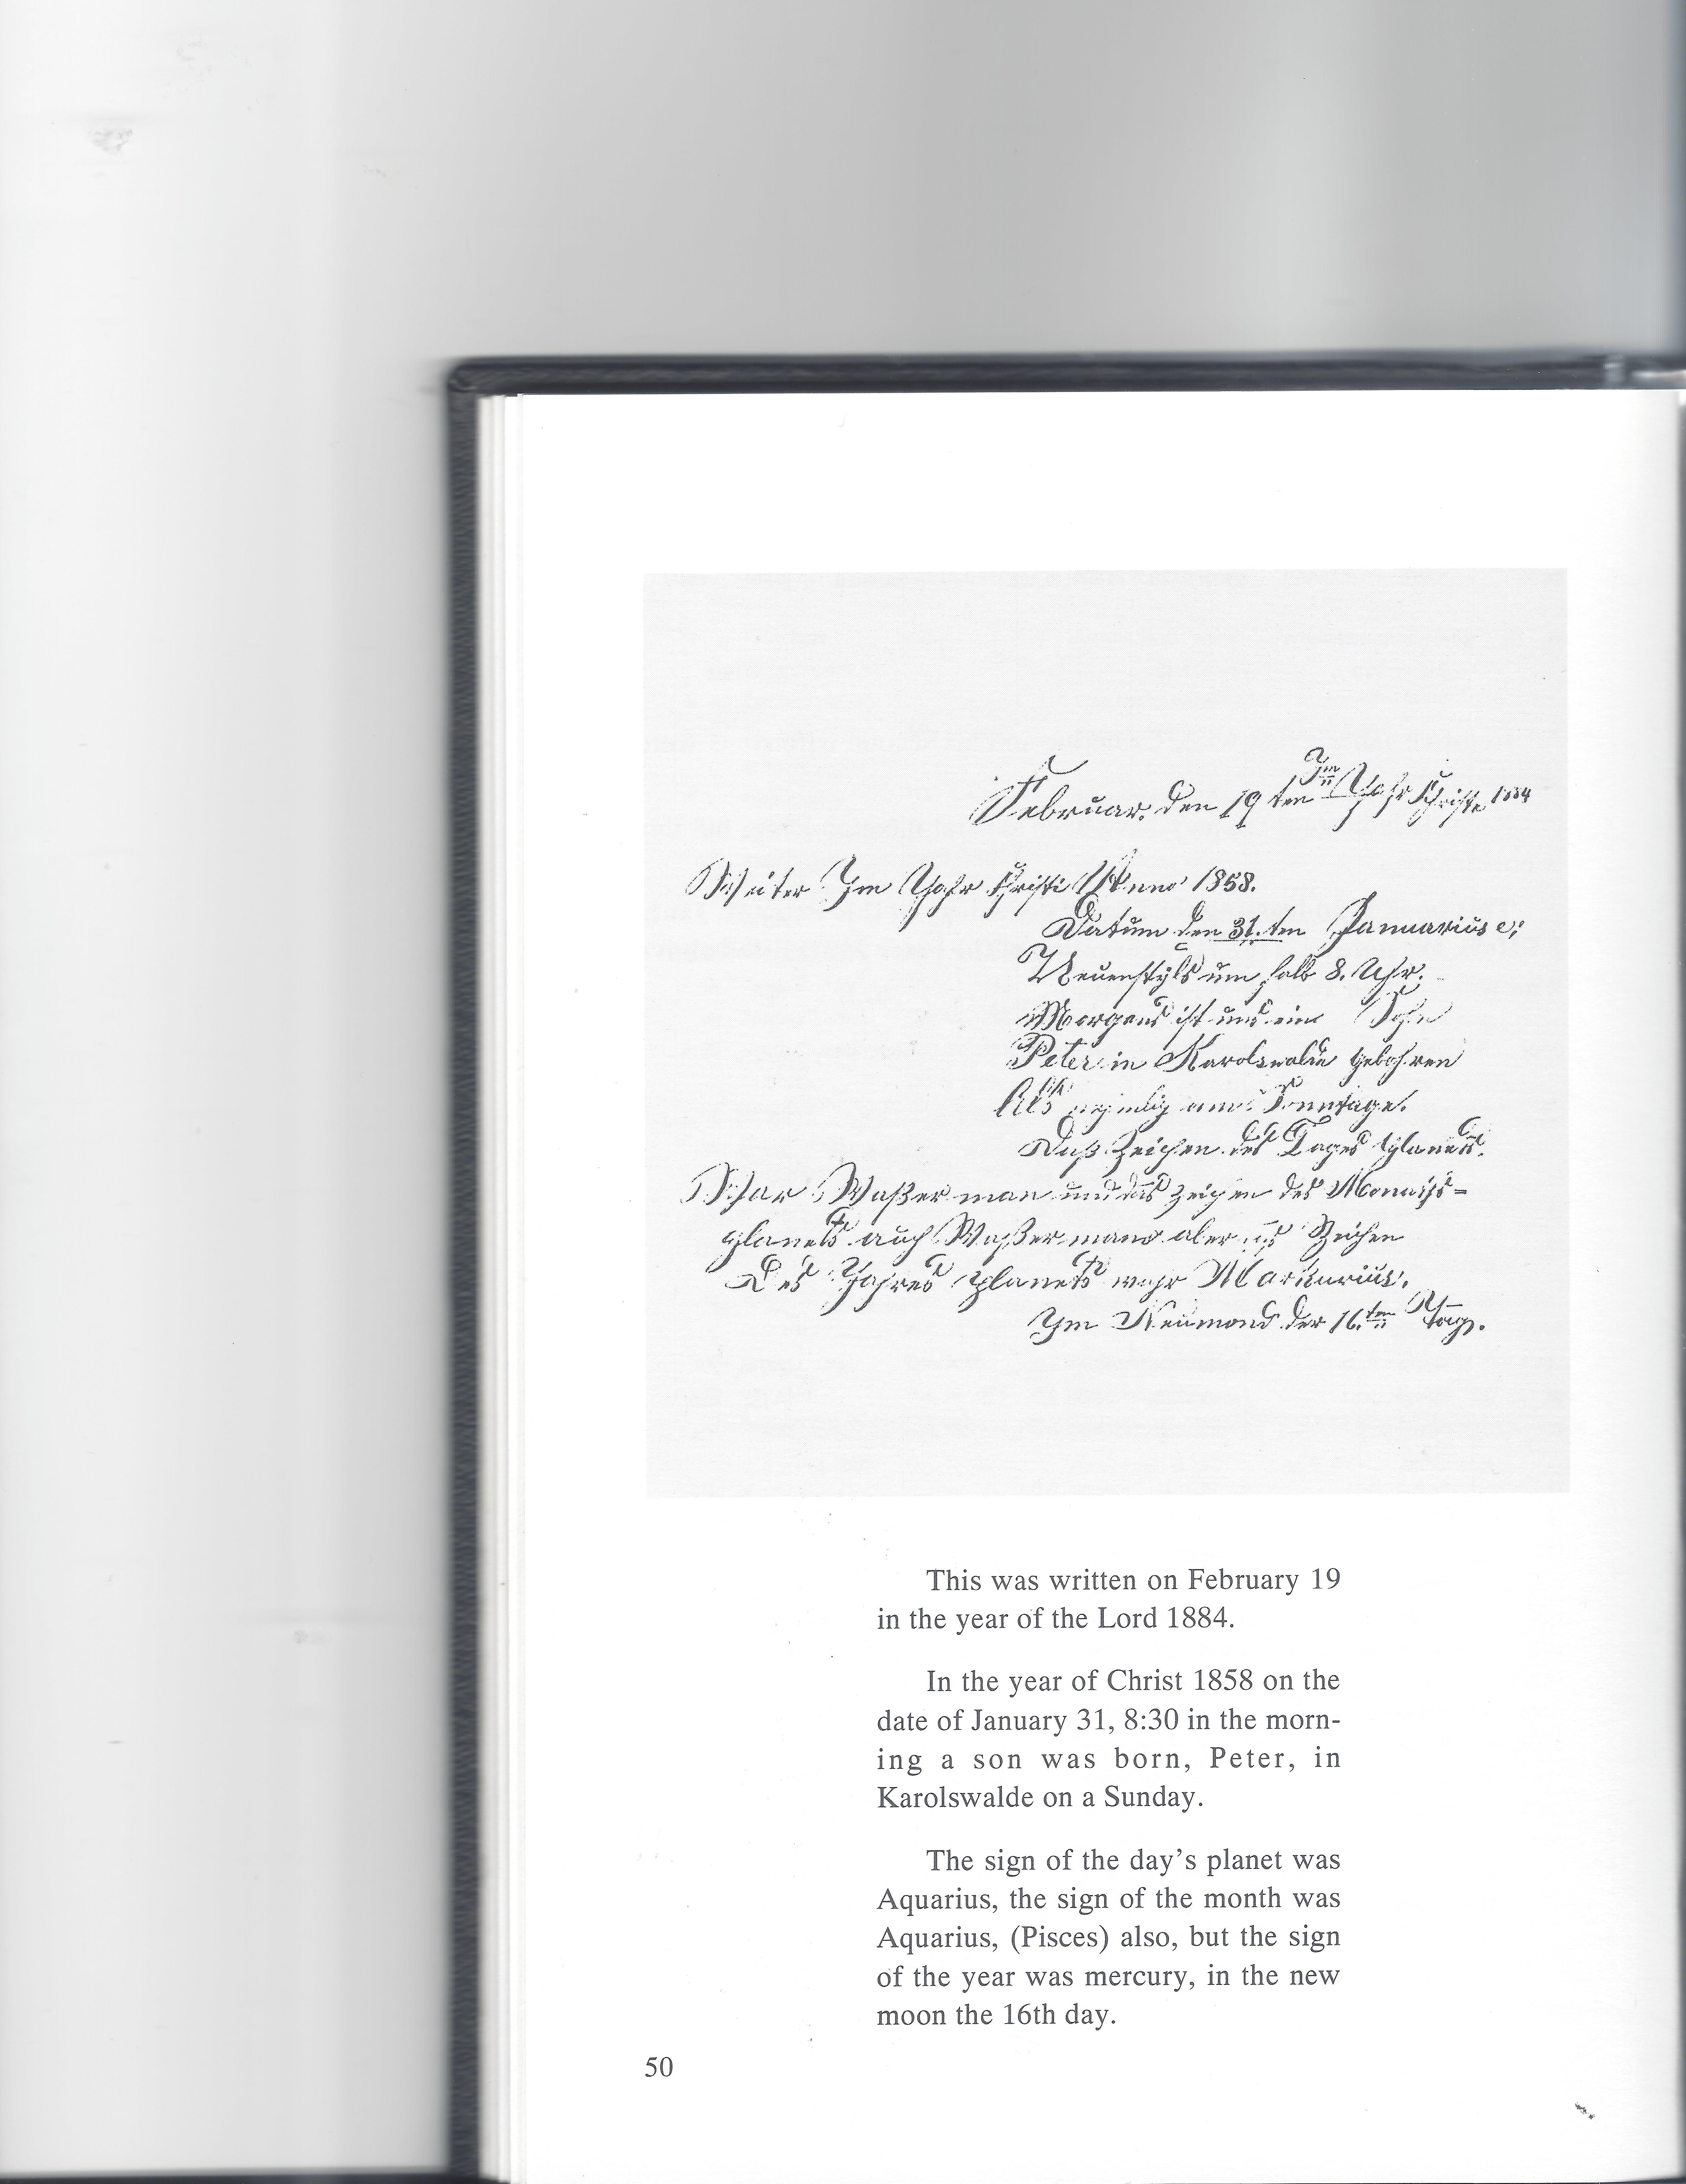 Februar. den 19ten Im Jahr Christi 1884
Weiter Im Jahr Christi Anno 1858.
Datum den 31.ten Januarius
Neuenstÿls um halb 8. Uhr.
Morgens ist uns ein Sohn
Peter in Karolswalde gebohren
Als am Sonntage.
Daß Zeichen des Tages planets.
War Waßerman und das zeichen des Monaths=
planets auch Waßermann aber Zeichen
Des Jahres planets wahr Markurius.
Im Neumond der 16.ten Tag.
This was written on February 19
in the year of the Lord 1884.
In the year of Christ 1858 on the
date of January 31, 8:30 in the morn-
ing a son was born, Peter, in
Karolswalde on a Sunday.
The sign of the day’s planet was
Aquarius, the sign of the month was
Aquarius, (Pisces) also, but the sign
of the year was mercury, in the new
moon the 16th day.
50